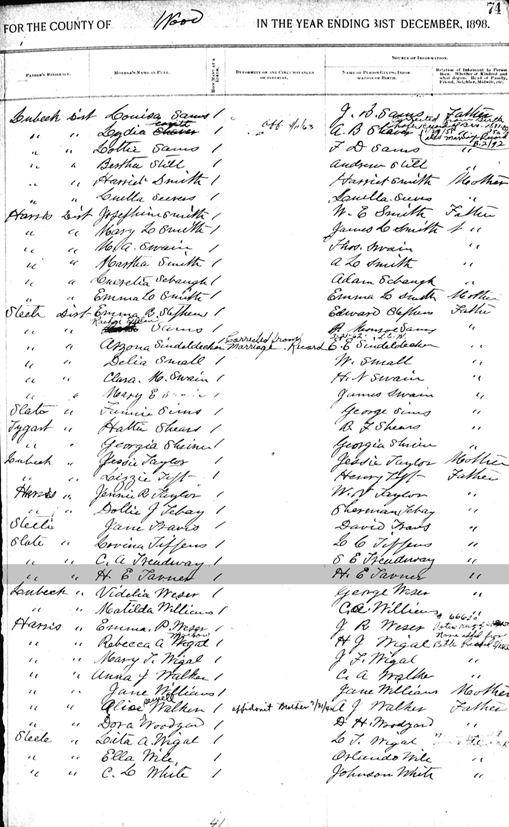 74
FOR THE COUNTY OF Wood IN THE YEAR ENDING 31ST DECEMBER, 1898.
SOURCE OF INFORMATION.
FATHER'S RESIDENCE. MOTHER'S NAME IN FULL. DEFORMITY OR ANY CIRCUMSTANCES OF INTEREST. NAME OF PERSON GIVING INFORMATION OF BIRTH. Relation of Informant to Person born. Whether of Kindred and what degree. Head of Family, Friend, Neighbor, Midwife, etc.
Lubeck Dist Louisa Sams 1 J. B. Sams Father
" " Lydia 1 A. B.
" " Lottie Sams 1 F D Sams "
" " Bertha Still 1 Andrew Still "
" " Harriet Smith 1 Harriet Smith Mother
" " Luella 1 Luella "
Harris Dist Josephine Smith 1 W. E Smith Father
" " Mary L Smith 1 James L Smith "
" " M. A. Swain 1 Thos. Swain "
" " Martha Smith 1 A L Smith "
" " Luerelia Sebaugh 1 Adam Sebaugh "
" " Emma L Smith 1 Emma L Smith Mother
Steele Dist Emma B. Stephens 1 Edward Stephens Father
" " Sams 1 Monroe Sams "
" " Arzona Sindeldecker Corrected from Marriage Record C. E Sindeldecker "
" " Delia Small 1 W. Small "
" " Clara M. Swain 1 H. N Swain "
" " Mary E 1 James Swain "
Slate " Fannie Sims 1 George Sims "
Tygart " Hattie Shears 1 B F Shears "
" " Georgia 1 Georgia "
Lubeck " Jessie Taylor 1 Jessie Taylor Mother
" " Lizzie Tift 1 Henry Tift Father
Harris " Jennie R Taylor 1 W. Taylor "
" " Dollie J Tebay 1 Sherman Tebay "
Steele " Jane Travis 1 David "
Slate " Lovina Tiffens 1 L C Tiffens "
" " C. A Treadway 1 S E Treadway "
" " H. E Tavner 1 H. E Tavner "
Lubeck " Videlia Weser 1 George Weser "
" " Matilda Williams 1 Williams "
Harris " Emma P. Weser 1 J R Weser
" " Rebecca A Wigal 1 H J Wigal
" " Mary T. Wigal 1 J F. Wigal "
" " Anna J Walker 1 C. A Walker "
" " Jane Williams 1 Jane Williams Mother
" " Alice Walker 1 affidavit Mother A J Walker Father
" " Dora Woodyard 1 D H. Woodyard "
Steele " Lita A. Wigal 1 L T. Wigal "
" " Ella Wile 1 Orlando Wile "
" " C. L White 1 Johnson White "
41